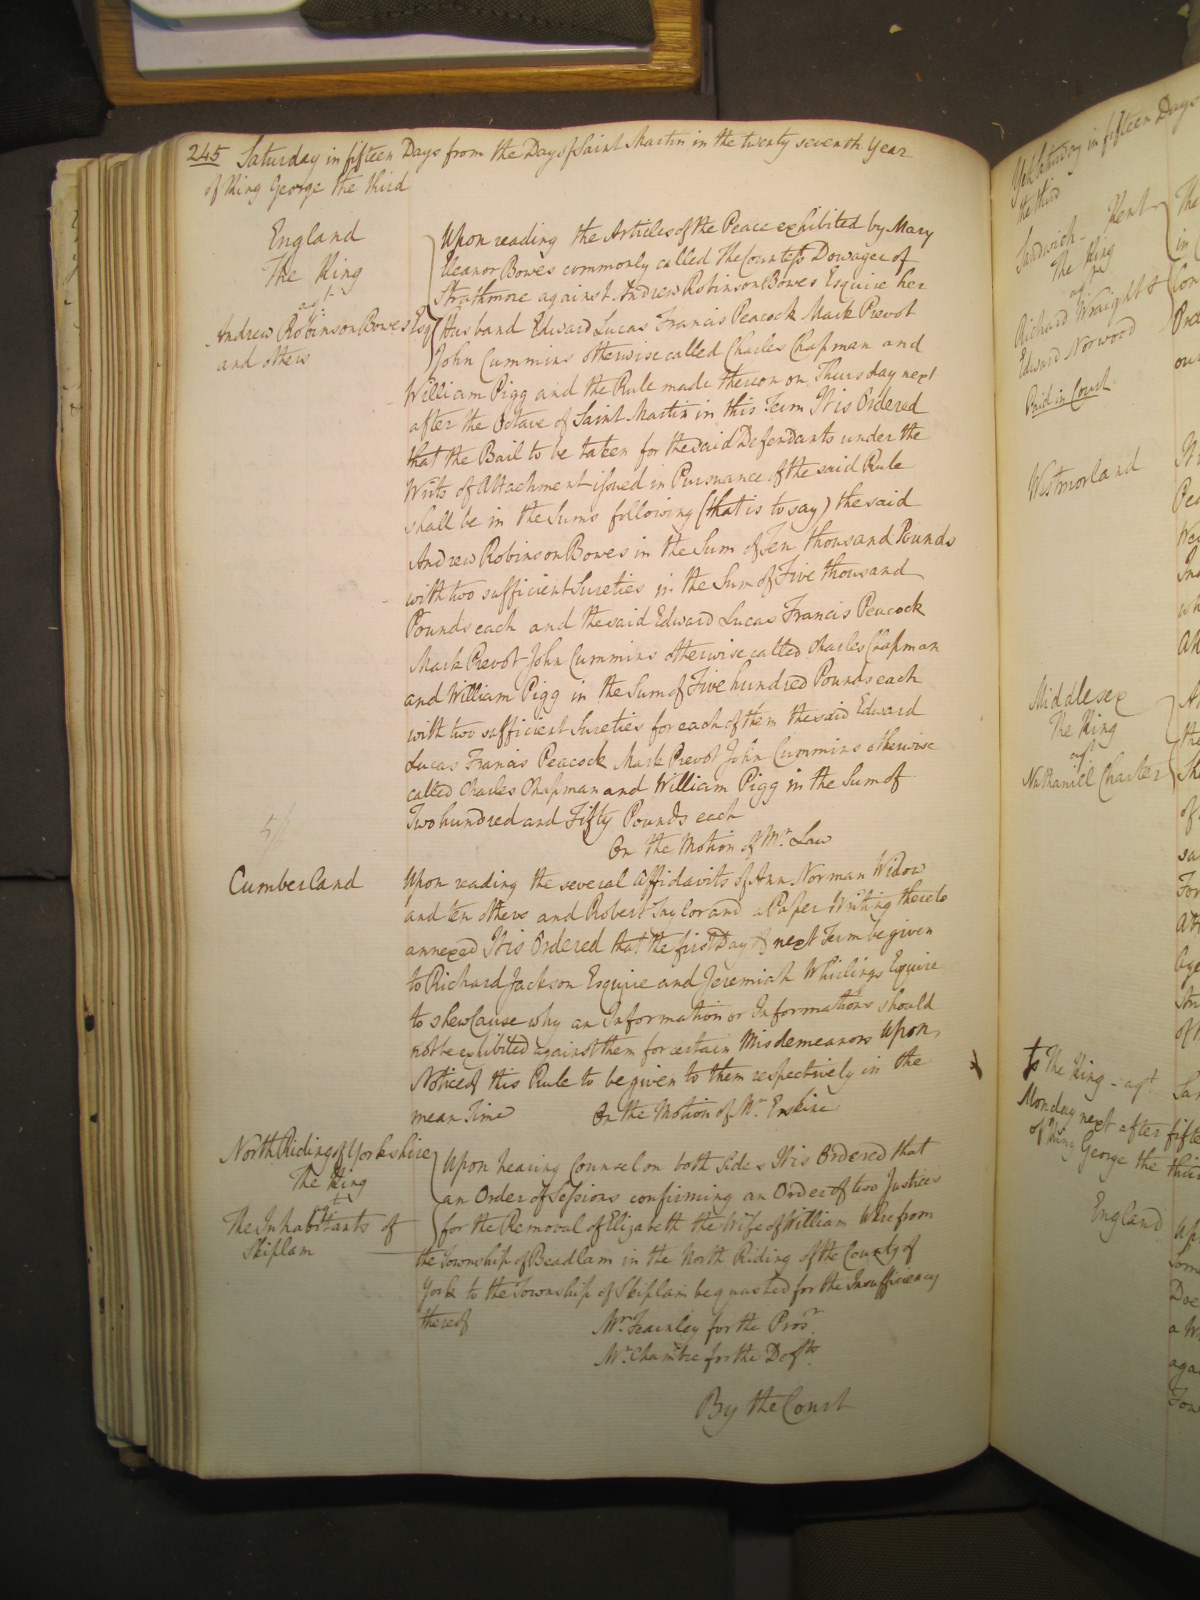 245 Saturday in fifteen Days from the Day of Saint Martin in the twenty seventh Year
of King George the third
England
The King
agt
Andrew Robinson Bowes Esqr
and others
Upon reading the Articles of the Peace exhibited by Mary
Eleanor Bowes commonly called The Countess Dowager of
Strathmore against Andrew Robinson Bowes Esquire her
Husband Edward Lucas Francis Peacock Mark Prevot
John Cummins otherwise called Charles Chapman and
William Pigg and the Rule made thereon on Thursday next
after the Octave of Saint Martin in this Term It is Ordered
that the Bail to be taken for the said Defendants under the
Writs of Attachment issued in Pursuance of the said Rule
shall be in the Sums following (that is to say) the said
Andrew Robinson Bowes in the Sum of Ten thousand Pounds
with two sufficient Sureties in the Sum of Five thousand
Pounds each and the said Edward Lucas Francis Peacock
Mark Prevot John Cummins otherwise called Charles Chapman
and William Pigg in the Sum of Five hundred Pounds each
with two sufficient Sureties for each of them the said Edward
Lucas Francis Peacock Mark Prevot John Cummins otherwise
called Charles Chapman and William Pigg in the Sum of
Two hundred and Fifty Pounds each
On the Motion of Mr. Law
Cumberland
Upon reading the several Affidavits of Ann Norman Widow
and ten others and Robert Taylor and a Paper Writing thereto
annexed It is Ordered that the first Day of next Term be given
to Richard Jackson Esquire and Jeremiah Esquire
to shew Cause why an Information or Informations should
not be exhibited against them for certain Misdemeanors Upon
Notice of this Rule to be given to them respectively in the
mean Time On the Motion of Mr. Erskine
North Riding of Yorkshire
The King
agt
The Inhabitants of
Skiplam
Upon hearing Counsel on both Sides It is Ordered that
an Order of Sessions confirming an Order of two Justices
for the Removal of Elizabeth the Wife of William from
the Township of Beadlam in the North Riding of the County of
York to the Township of Skiplam be quashed for the Insufficiency
thereof
Mr. Fearnley for the Prosr
Mr. Chambre for the Defts
By the Court
Yet Saturday in fifteen Days
the third
Sandwich - Kent
The King
agt
Richard Wraight &
Edward Norwood
Paid in Court
Westmorland
Middlesex
The King
agt
Nathaniel Charter
to The King - agt
Monday next after fifte
of King George the thir
England